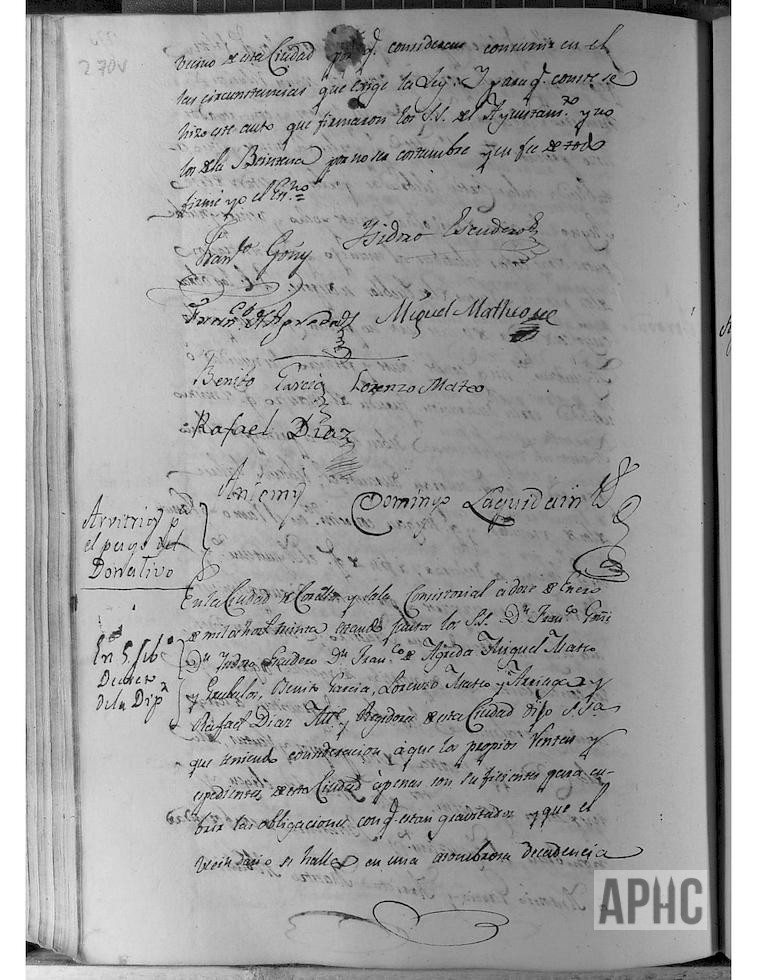 270v
vecino de esta Ciudad por q.e considerar concurrir en el
las circunstancias que exige la Ley. Y para q.e conste se
hizo este auto que firmaron los S.S. del Ayuntam.to y no
los de la Veintena por no ser costumbre y en fee de todo
firmé yo el Es.no =
Fran.co Goñy Isidro Escudero
Fran.co de Agreda Miguel Matheo
Benito Garcia Lorenzo Mateo
Rafael Diaz
Antemy Domingo Laquidain
Arvitrios p.a
el pago del
Donativo
En la Ciudad de Corella y Sala Consistorial á doce de Enero
de mil ochoc.s treinta estando juntos los S.S. D.n Fran.co Goñi
D.n Isidro Escudero D.n Fran.co de Agreda Miguel Mateo
y Grubulos, Benito Garcia, Lorenzo Mateo y Arriaga y
Rafael Diaz Alc.e y Regidores de esta Ciudad dijo S.Sa.
que teniendo consideracion a que los propios Rentas y
expedientes de esta Ciudad apenas son suficientes para cu-
brir las obligaciones con q.e estan gravitados y que el
vecindario se halla en una asombrosa decadencia
En 5 feb.o
Decreto
de la Dip.n
APHC